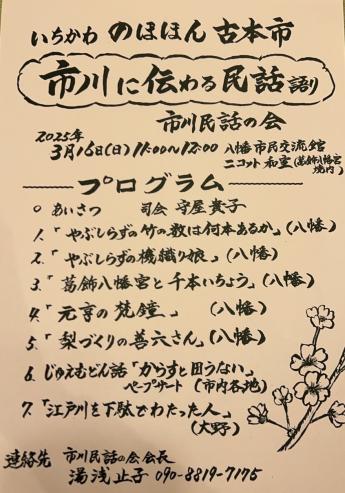 いちかわ のほほん 古本市
市川に伝わる民話語り
市川民話の会
2025年
3月16日(日) 11:00〜12:00 八幡市民交流館
ニコット 和室(葛飾八幡宮境内)
プログラム
○ あいさつ 司会 守屋貴子
1.「やぶしらずの竹の数は何本あるか」(八幡)
2.「やぶしらずの機織り娘」(八幡)
3.「葛飾八幡宮と千本いちょう」(八幡)
4.「元亨の梵鐘」(八幡)
5.「梨づくりの善六さん」(八幡)
6. じゅえむどん話「からすと田うない」
ペープサート(市内各地)
7.「江戸川を下駄でわたった人」
(大野)
連絡先 市川民話の会会長
湯浅止子 090-8819-7175